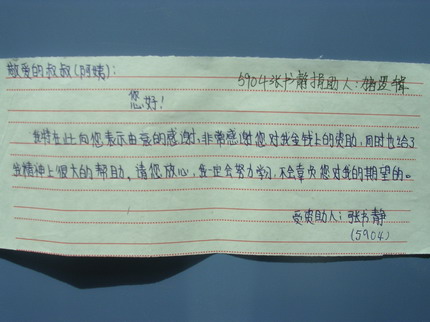 敬爱的叔叔(阿姨):
5904张书静捐助人:
您好!
我特在此向您表示由衷的感谢,非常感谢您对我金钱上的资助,同时也给了
我精神上很大的帮助。请您放心,我一定会努力学习,不会辜负您对我的期望的。
受资助人:张书静
(5904)